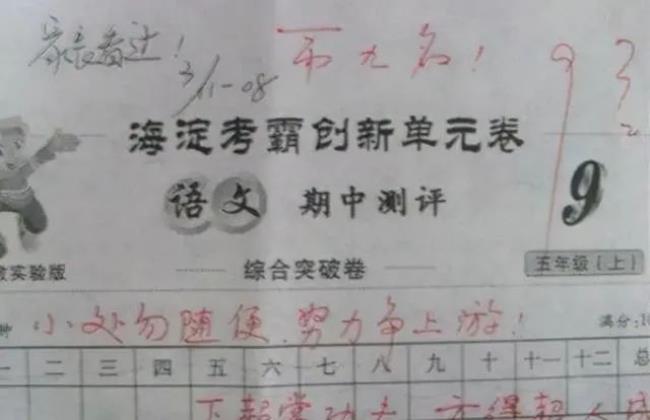 家长看过！
3/11-08
第九名！
海淀考霸创新单元卷
语文 期中测评
9
实验版
综合突破卷
五年级（上）
小处勿随便，努力争上游！
满分:1
二 三 四 五 六 七 八 九 十 十一 十二 总